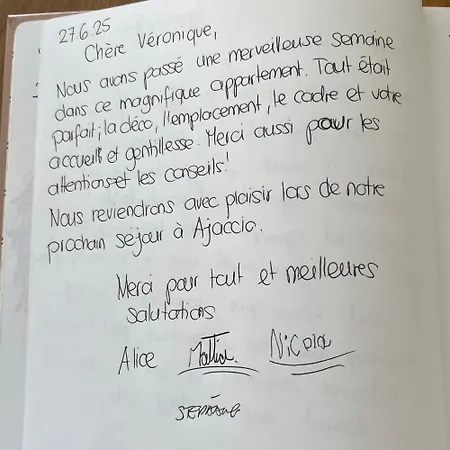 27.6.25
Chère Véronique,
Nous avons passé une merveilleuse semaine
dans ce magnifique appartement. Tout était
parfait; la déco, l'emplacement, le cadre et votre
accueil et gentillesse. Merci aussi pour les
attentions et les conseils!
Nous reviendrons avec plaisir lors de notre
prochain séjour à Ajaccio.
Merci pour tout et meilleures
salutations
Alice Mattia Nicola